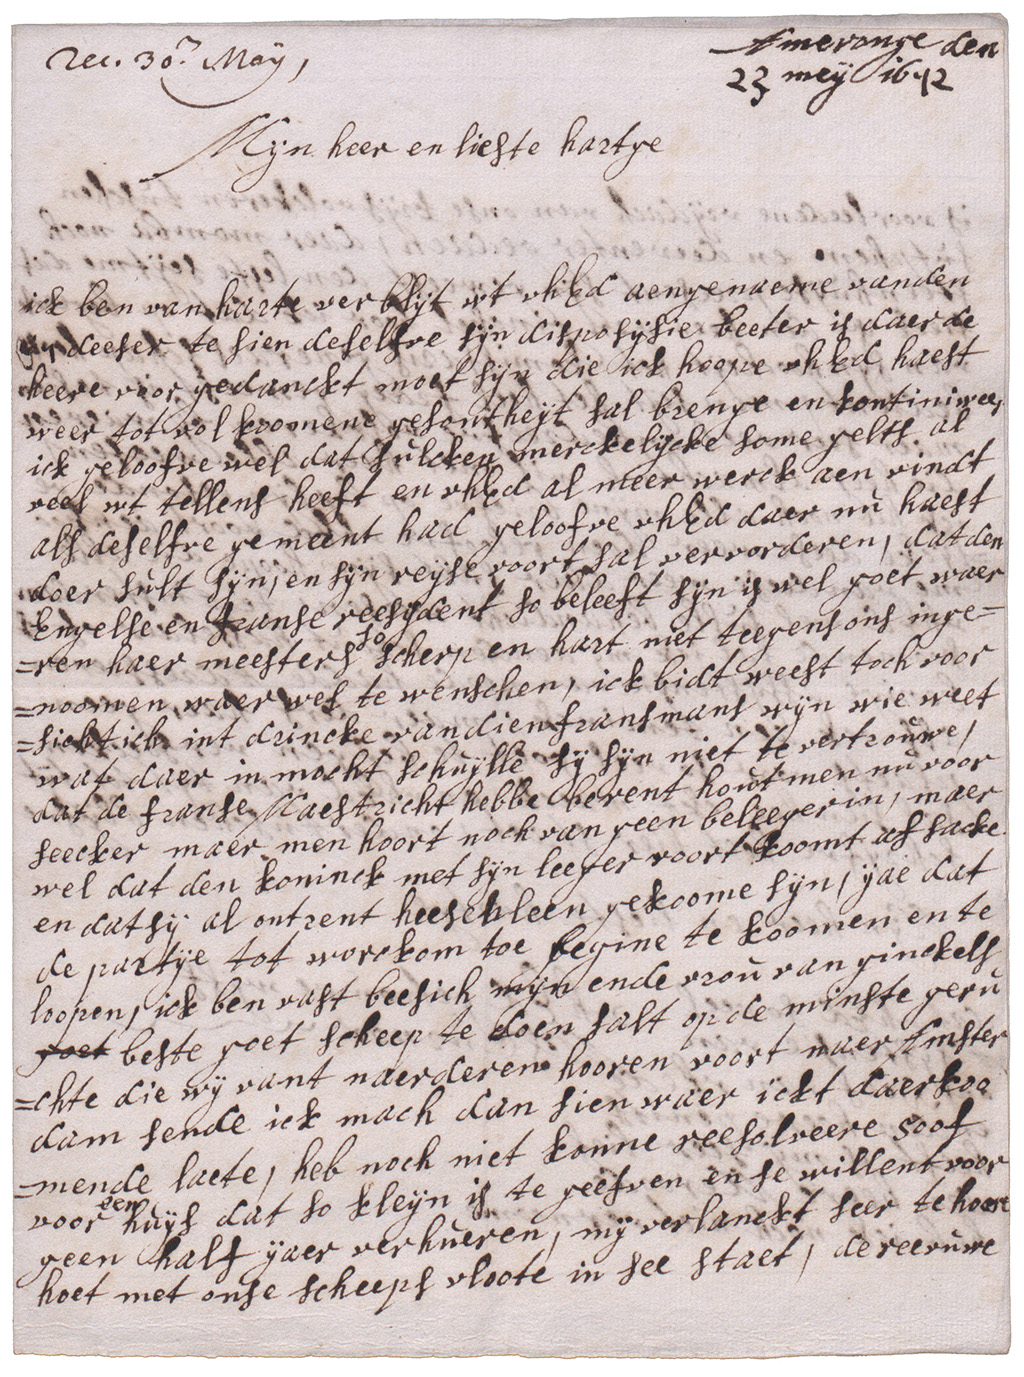 Rec. 30.n Maÿ,
Amerange den
23 meÿ 1672
Mijn heer en lieste hartge
ick ben van harte verblijt wt uhEd aengenaeme vanden
deeser te sien deselfve sijn disposijsie beeter is daer de
heere voor gedanckt moet sijn die ick hoope uhEd haest
weer tot vol koomene gesontheijt sal brenge en kontiniwee,
ick geloofve wel dat sulcken merckelijcke some gelts al
veel wt tellens heeft en uhEd al meer werck aen vindt
als deselfve gemeent had geloofve uhEd daer nu haest
doer sult sijn, en sijn reijse voort sal vervorderen, dat den
Engelse en franse reesijdent so beleeft sijn is wel goet waer
=ren haer meesters so scherp en hart niet teegens ons inge=
=noomen waer wes te wenschen, ick bidt weest toch voor
=sichtich int drincke van dien fransmans wijn wie weet
wat daer in mocht schuijlle sij sijn niet te vertrouwe,
dat de franse Maestricht hebbe berent hout men nu voor
seecker maer men hoort noch van geen beleegerin, maer
wel dat den koninck met sijn leeger voort koomt af sacke
en dat sij al ontrent heesebleen gekoome sijn, ijae dat
de partije tot worckom toe begine te koomen en te
loopen, ick ben vast beesich mijn ende vrou van ginckels
goet beste goet scheep te doen salt op de minste geru
=chte die wij vant naerderen hooren voort naer Amster
dam sende ick mach dan sien waer ickt daer koo
=mende laete, heb noch niet konne reesolveere soof
voor een huijs dat so kleijn is te geefven en se willent voor
geen half ijaer verhueren, mij verlanckt seer te hoore
hoet met onse scheeps vloote in see staet, de reevuwe